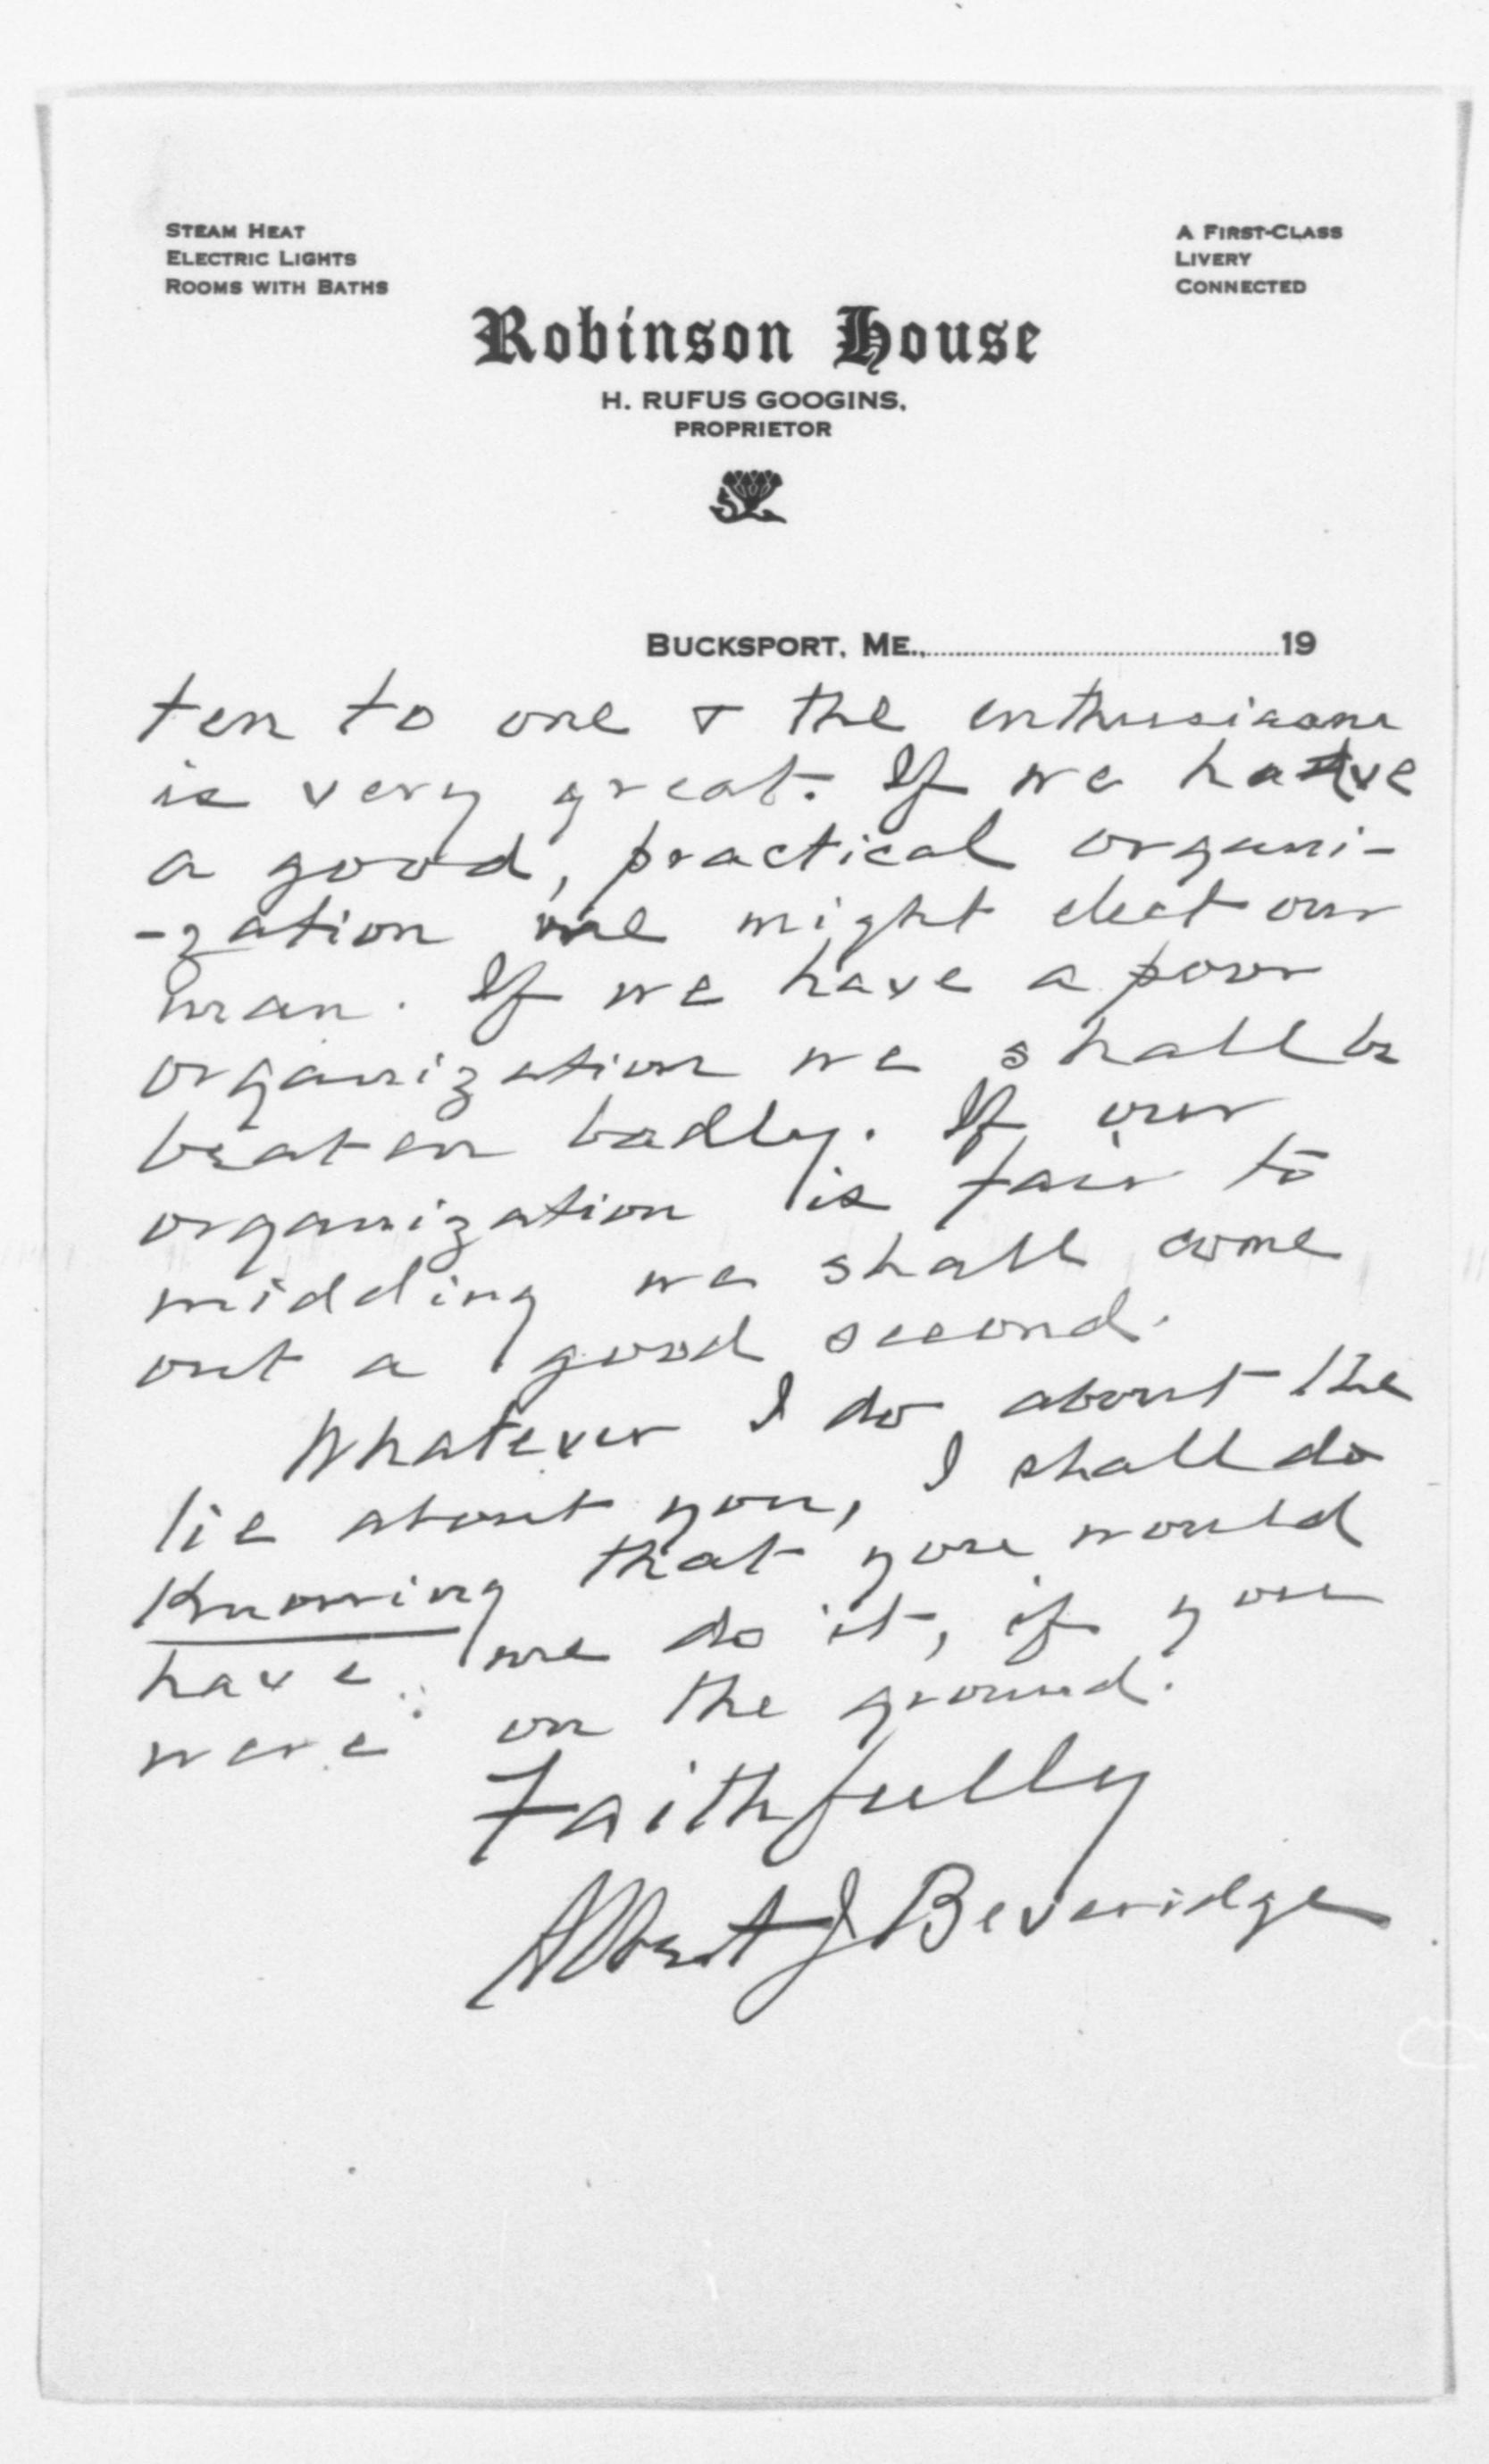 STEAM HEAT
ELECTRIC LIGHTS
ROOMS WITH BATHS
A FIRST-CLASS
LIVERY
CONNECTED
Robinson House
H. RUFUS GOOGINS,
PROPRIETOR
BUCKSPORT, ME., 19
ten to one & the enthusiasm
is very great. If we have
a good, practical organi-
-zation we might elect our
man. If we have a poor
organization we shall be
beaten badly. If our
organization is fair to
midding we shall come
out a good second.
Whatever I do about the
lie about you, I shall do
knowing that you would
have me do it, if you
were on the ground.
Faithfully
Albert J Beveridge